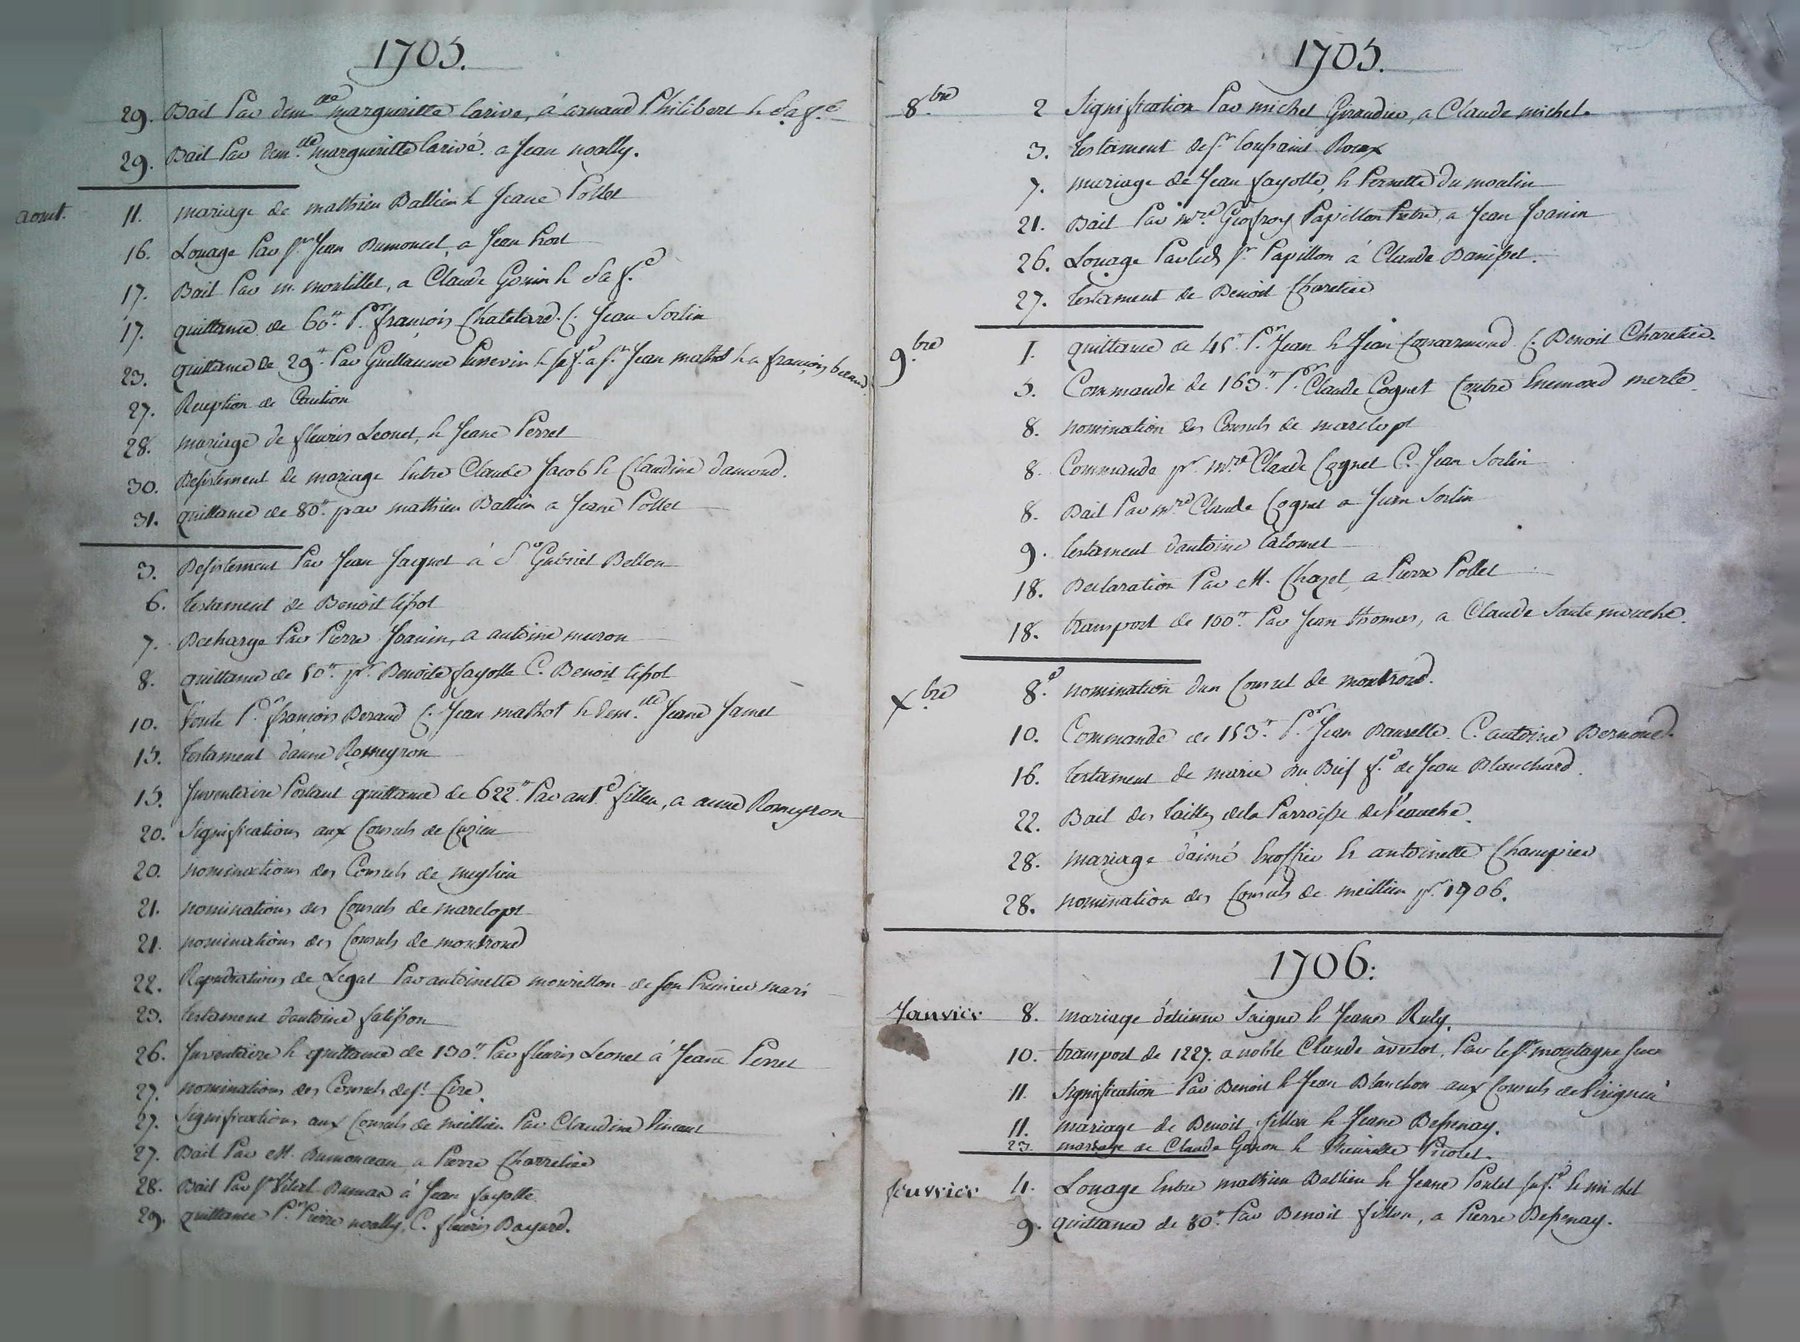 1705.
29. Bail Par dem.lle margueritte Larive, à arnaud Philibert & Sa f.e
29. Bail Par dem.lle margueritte Larivé. a Jean noally.
aout. 11. mariage de mathieu Ballein & Jeane Pollet
16. Louage Par Sr Jean Dumoncel, a Jean
17. Bail Par m. montillet, a Claude Gonin & Sa f.e
17. quittance de 60.tt P.r françois Chatelard C. Jean Sorlin
23. quittance de 29.tt Par Guillaume & Sa f.e a Sr Jean mathot & a françois
27. Reception de Caution
28. mariage de fleuris Leonet, & Jeane Perret
30. Desistement de mariage Entre Claude Jacob & Claudine damond.
31. quittance de 80.tt par mathieu Ballein a Jeane Pollet
3. Desistement Par Jean Jaquet à Sr Gabriel Bellon
6. testament de Benoit tissot
7. Decharge Par Pierre Jranin, a antoine muron
8. quittance de 50.tt pr. Benoite fayolle C. Benoit tissot
10. Vente P.r françois Beraud C. Jean mathot & dem.lle Jeane Jamet
13. testament d'anne Romeyron
13. Jnventaire Portant quittance de 622.tt Par ant.e fillon, a anne Romeyron
20. Significations aux Consuls de Cuzieu
20. nominations des Consuls de meylieu
21. nominations des Consuls de marclopt
21. nominations des Consuls de montrond
22. Repudiations de Legat Par antoinette mourillon de son Premier mari
23. testament d'antoine falisson
26. Jnventaire & quittance de 130.tt Par fleuris Leonet à Jeane Perret
27. nominations des Consuls de St. Cire.
27. Significations aux Consuls de meillieu Par Claudine Vincent
27. Bail Par M. Dumonceau a Pierre Charretier
28. Bail Par Sr Vital Dumas à Jean fayolle
29. quittance P.r Pierre noally, C. fleuris Bayard.
1705.
8.bre 2 Signification Par michel Giraudier, a Claude michel.
3. testament de Sr toussaint Roux
7. mariage de Jean fayolle, & Pernette du moulin
21. Bail Par mre Geofroy Papillon Pretre, a Jean Jranin
26. Louage Par led. Sr Papillon à Claude Danisset.
27. testament de Benoit Charetier
9.bre 1. quittance de 45.tt P.r Jean & Jean C. Benoit Charetier.
3. Commande de 163.tt P.r Claude Cognet Contre Enemond merle.
8. nomination des Consuls de marclopt
8. Commande pr. mre Claude Cognet C. Jean Sorlin
8. Bail Par mre Claude Cognet a Jean Sorlin
9. testament d'antoine Calomet
18. Declaration Par M. Chazet, a Pierre Pollet
18. transport de 100.tt Par Jean thomas, a Claude Saute mouche.
Xbre 8. nomination d'un Consul de montrond.
10. Commande de 153.tt P.r Jean C. antoine Bernoud.
16. testament de marie du Bief f.e de Jean Blanchard.
22. Bail des tailles de la Parroisse de Veauche.
28. mariage d'aimé & antoinette Champier
28. nomination des Consuls de meillieu pr. 1706.
1706.
Janvier 8. mariage d'etienne Saigne & Jeane Ruly.
10. transport de 1227. a noble Claude, Par le Sr montagne
11. Signification Par Benoit & Jean Blanchon aux Consuls de Virigneu
11. mariage de Benoit fillon & Jeane Depenay.
23. mariage de Claude Gonon & Pierrette Violet.
fevrier 4. Louage Entre mathieu Ballein & Jeane Pollet sa f.e & michel
9. quittance de 80.tt Par Benoit fillon, a Pierre Depenay.